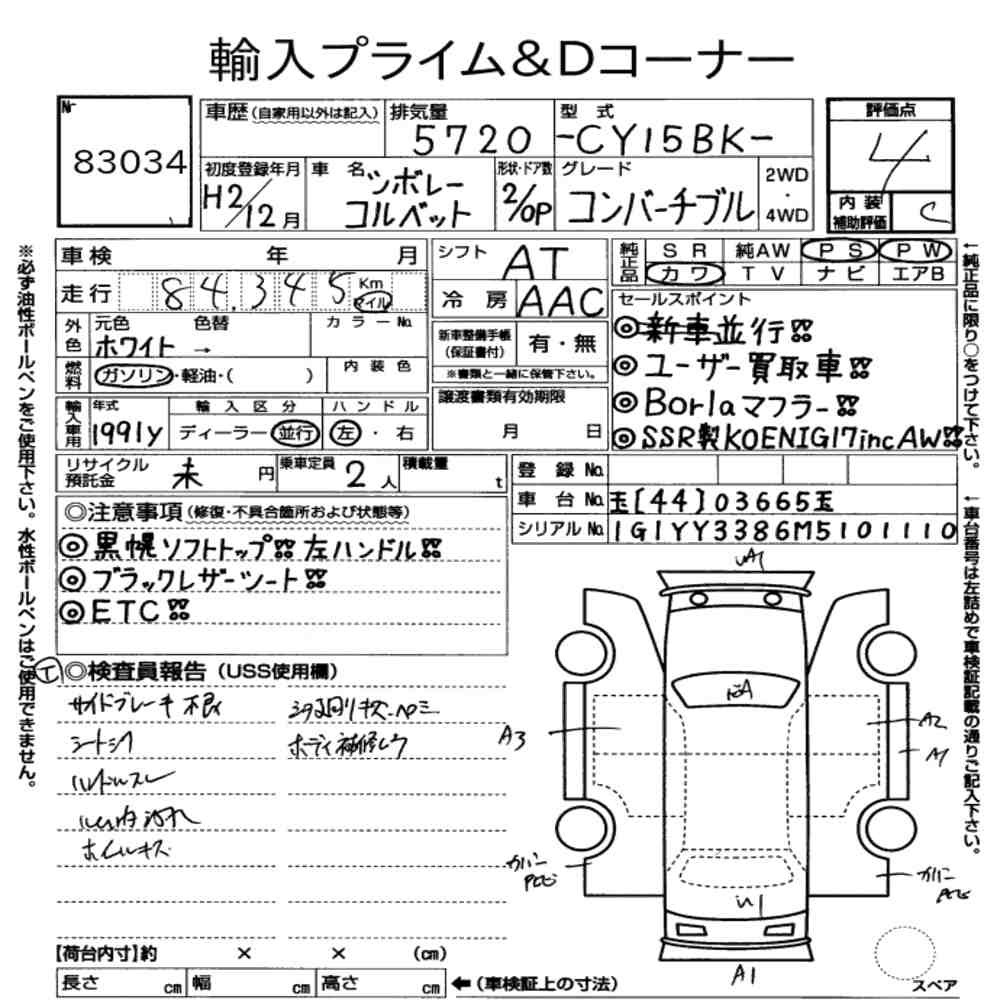 輸入プライム&Dコーナー
Nr 83034
車歴 (自家用以外は記入)
排気量 5720
型式 -CY15BK-
評価点 4
初度登録年月 H2/12月
車名 シボレー コルベット
形状・ドア数 2/OP
グレード コンバーチブル
2WD ・ 4WD
内装補助評価 C
車検 年 月
シフト AT
純正品 SR 純AW PS PW
カワ TV ナビ エアB
走行 84,345 Km マイル
冷房 AAC
セールスポイント
◎新車並行!!
◎ユーザー買取車!!
◎Borlaマフラー!!
◎SSR製KOENIG17incAW!!
外色 元色 色替 カラーNo.
ホワイト →
新車整備手帳(保証書付) 有・無
※書類と一緒に保管下さい。
燃料 ガソリン・軽油・( ) 内装色
譲渡書類有効期限
月 日
輸入車用 年式 1991y
輸入区分 ディーラー 並行
ハンドル 左 ・ 右
リサイクル預託金 未 円
乗車定員 2人
積載量 t
登録No.
車台No. 玉[44]03665玉
シリアルNo. 1G1YY3386M5101110
◎注意事項(修復・不具合箇所および状態等)
◎黒幌ソフトトップ!!左ハンドル!!
◎ブラックレザーシート!!
◎ETC!!
◎検査員報告 (USS使用欄)
サイドブレーキ不良
シートシワ
ハンドルスレ
ホイルキズ
A3
A2
A1
A1
※必ず油性ボールペンをご使用下さい。水性ボールペンはご使用できません。
←純正品に限り○をつけて下さい。
←車台番号は左詰めで車検証記載の通りご記入下さい。
【荷台内寸】約 × × (cm)
長さ cm 幅 cm 高さ cm ←(車検証上の寸法)
スペア